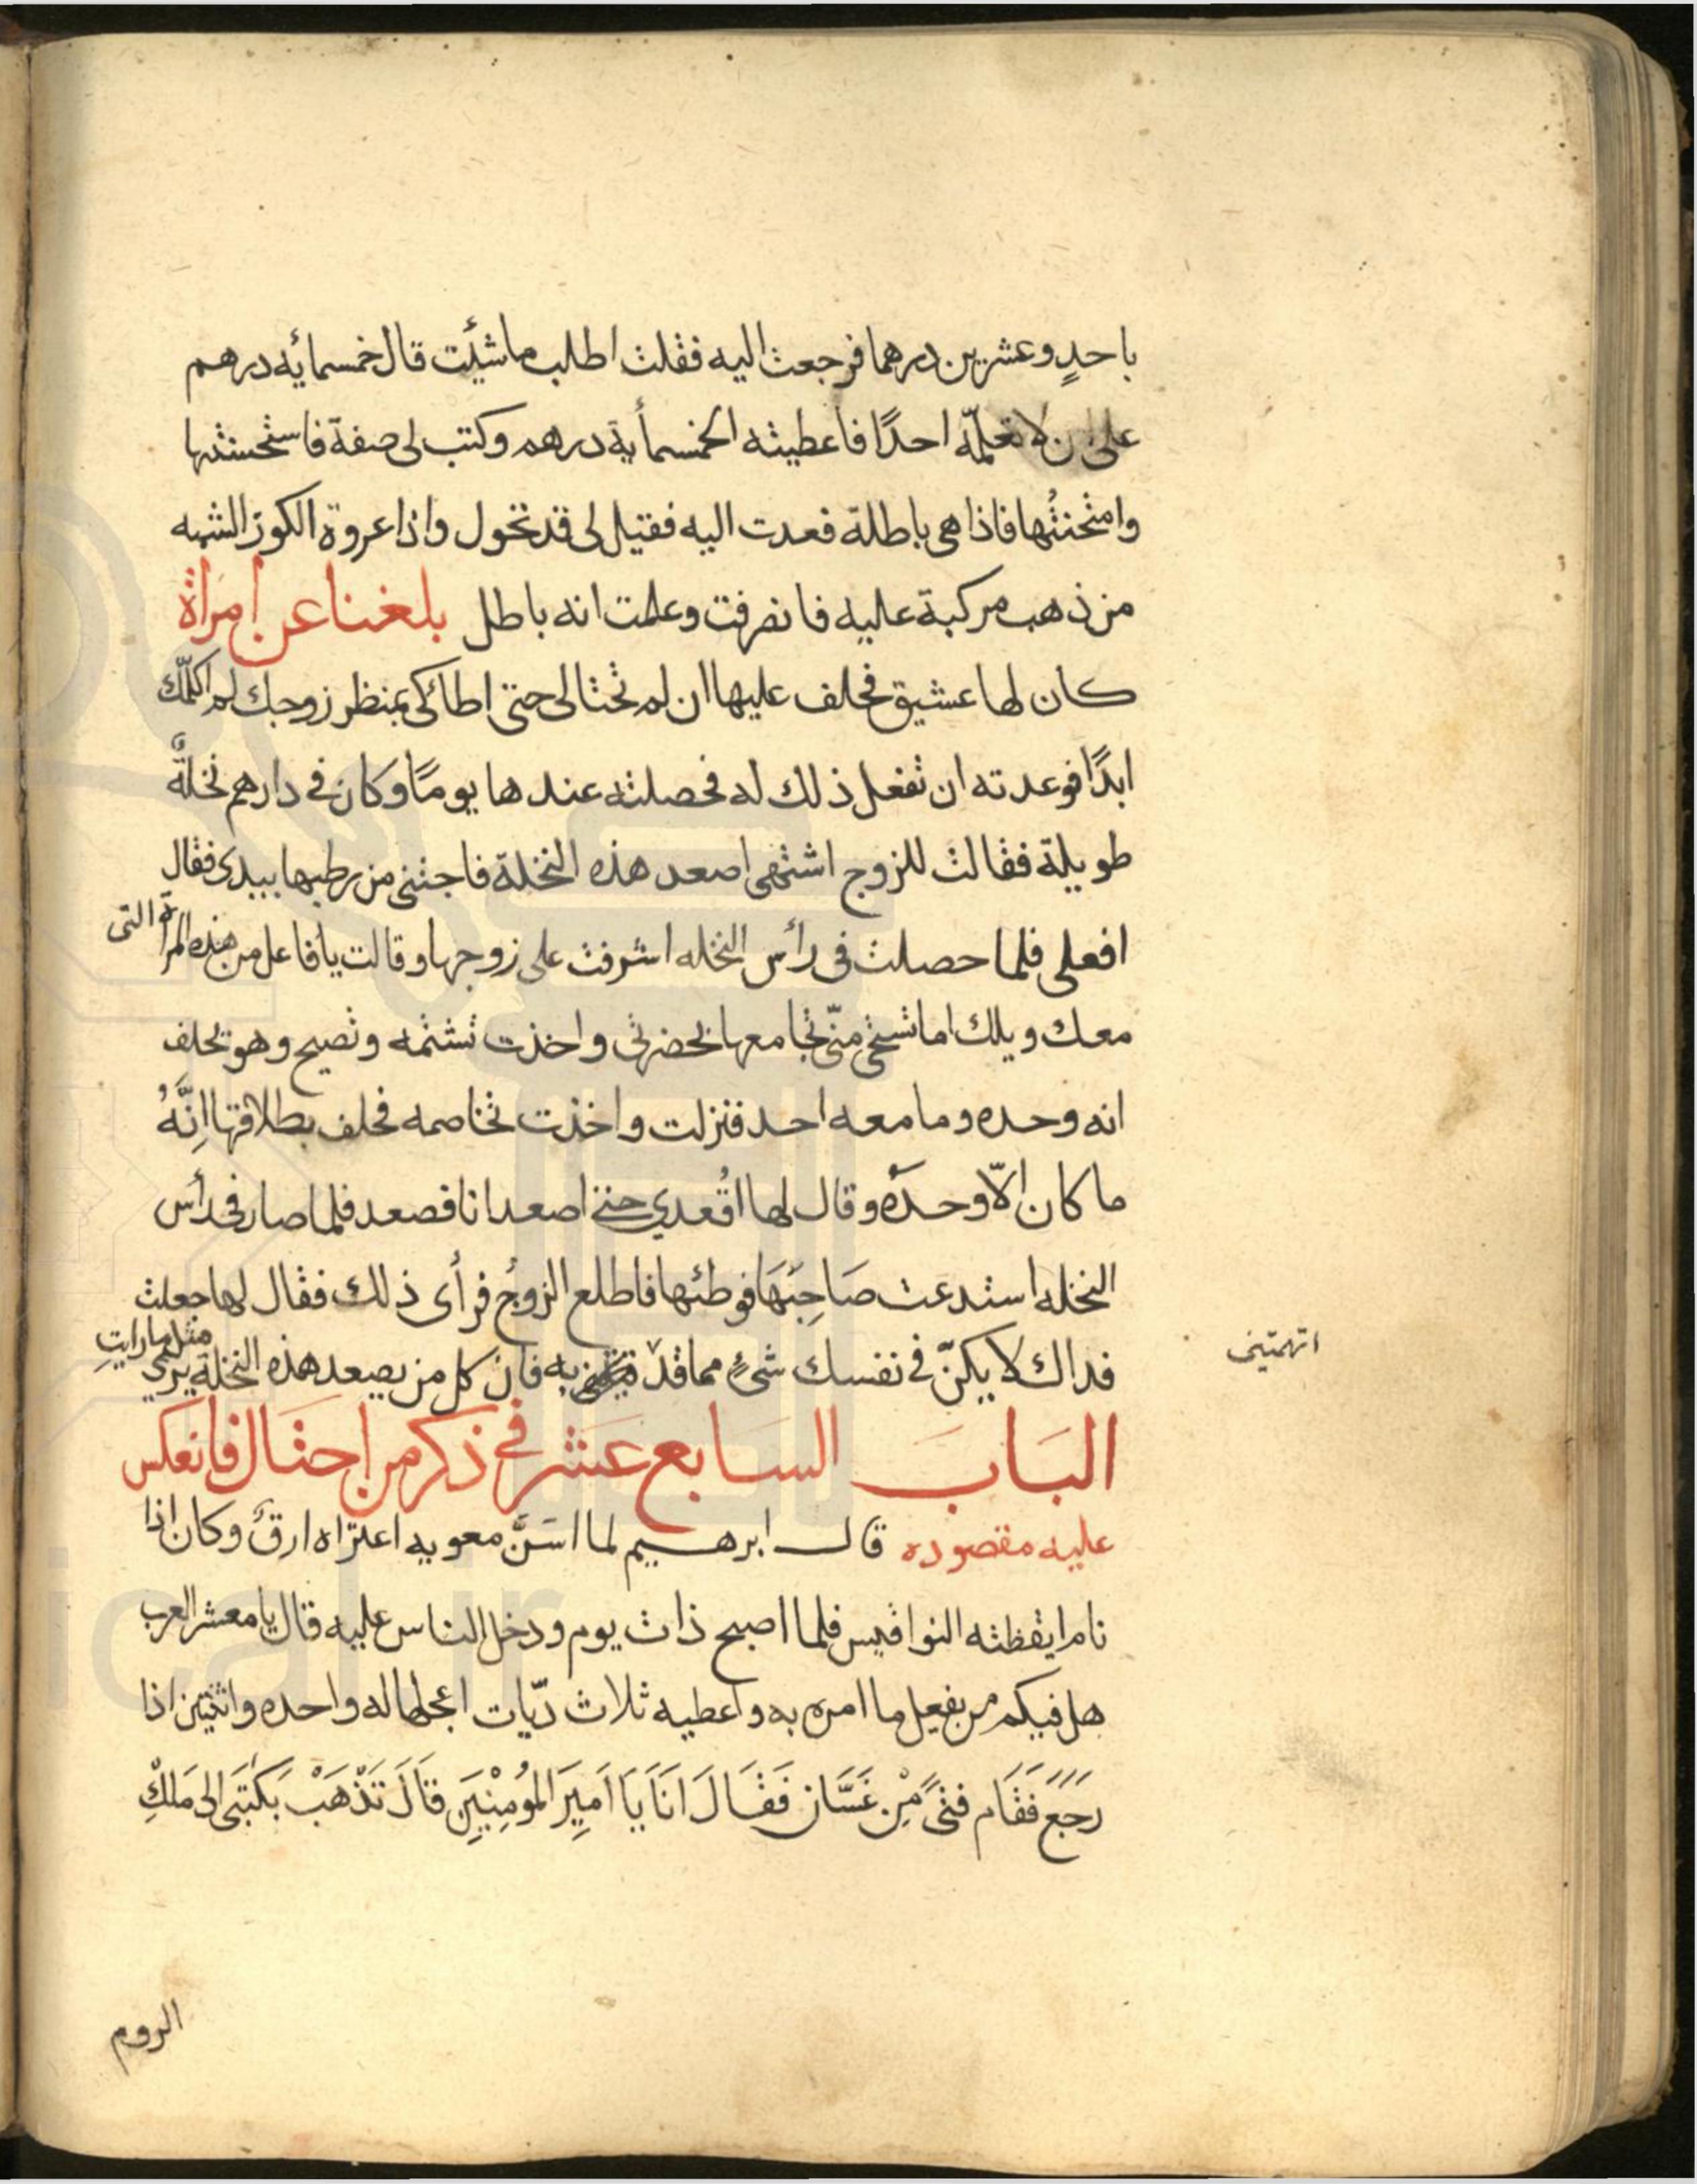 باحدٍ وعشرين درهما فرجعت اليه فقلت اطلب ما شئت قال خمسمائه درهم
على ان لا تعلمّه احدًا فاعطيته الخمسمأية درهم وكتب لى صفة فاستحسنتها
وامتحنتُها فاذا هى باطلة فعدت اليه فقيل لى قد تحول واذا عروة الكوز الشبه
من ذهب مركبة عليه فانصرفت وعلمت انه باطل بلغنا عن امرَأة
كان لها عشيق فحلف عليها ان لم تحتالى حتى اطائكى بمنظر زوجك لم اكلّمك
ابدًا فوعدته ان تفعل ذلك له فحصلته عندها يومًا وكان فى دارهم نخلةٌ
طويلة فقالت للزوج اشتهى اصعد هذه النخلة فاجتنى من رطبها بيدى فقال
افعلى فلما حصلت فى رأس النخله اشرفت على زوجها وقالت يا فاعل من هذه المرأة التى
معك ويلك اما تستحى منّى تجامعها بحضرتى واخذت تشتمه وتصيح وهو يحلف
انه وحده وما معه احد فنزلت واخذت تخاصمه فحلف بطلاقها اِنَّهُ
ما كان الاّ وحدَه وقال لها اقُعدي حتى اصعد انا فصعد فلما صار فى رأس
النخله استدعت صَاحِبَهَا فوطئها فاطلع الزوجُ فرأى ذلك فقال لها جعلت
فداك لا يكنّ فى نفسك شىءٍ مما قد به فان كل من يصعد هذه النخلة يرى مثل ما رايتِ
اتهمتينى
البَابَ السَابع عَشر فى ذكر من احتَال فانعكس
عليه مقصوده قال ابرهيم لما اسَنَّ معويه اعتراه ارقٌ وكان اذا
نام ايقظته النواقيس فلما اصبح ذات يوم ودخل الناس عليه قال يا معشر العرب
هل فيكم من يفعل ما امره به واعطيه ثلاث ديّات اعجلها له واحده واثنتين اذا
رَجَعَ فَقَام فتىً مِنْ غَسَّان فَقَالَ اَنَا يَا اَمِيرَ المُومِنْيَنِ قاَلَ تَذْهَبْ بَكتَبَى الى مَلكِ
الروم